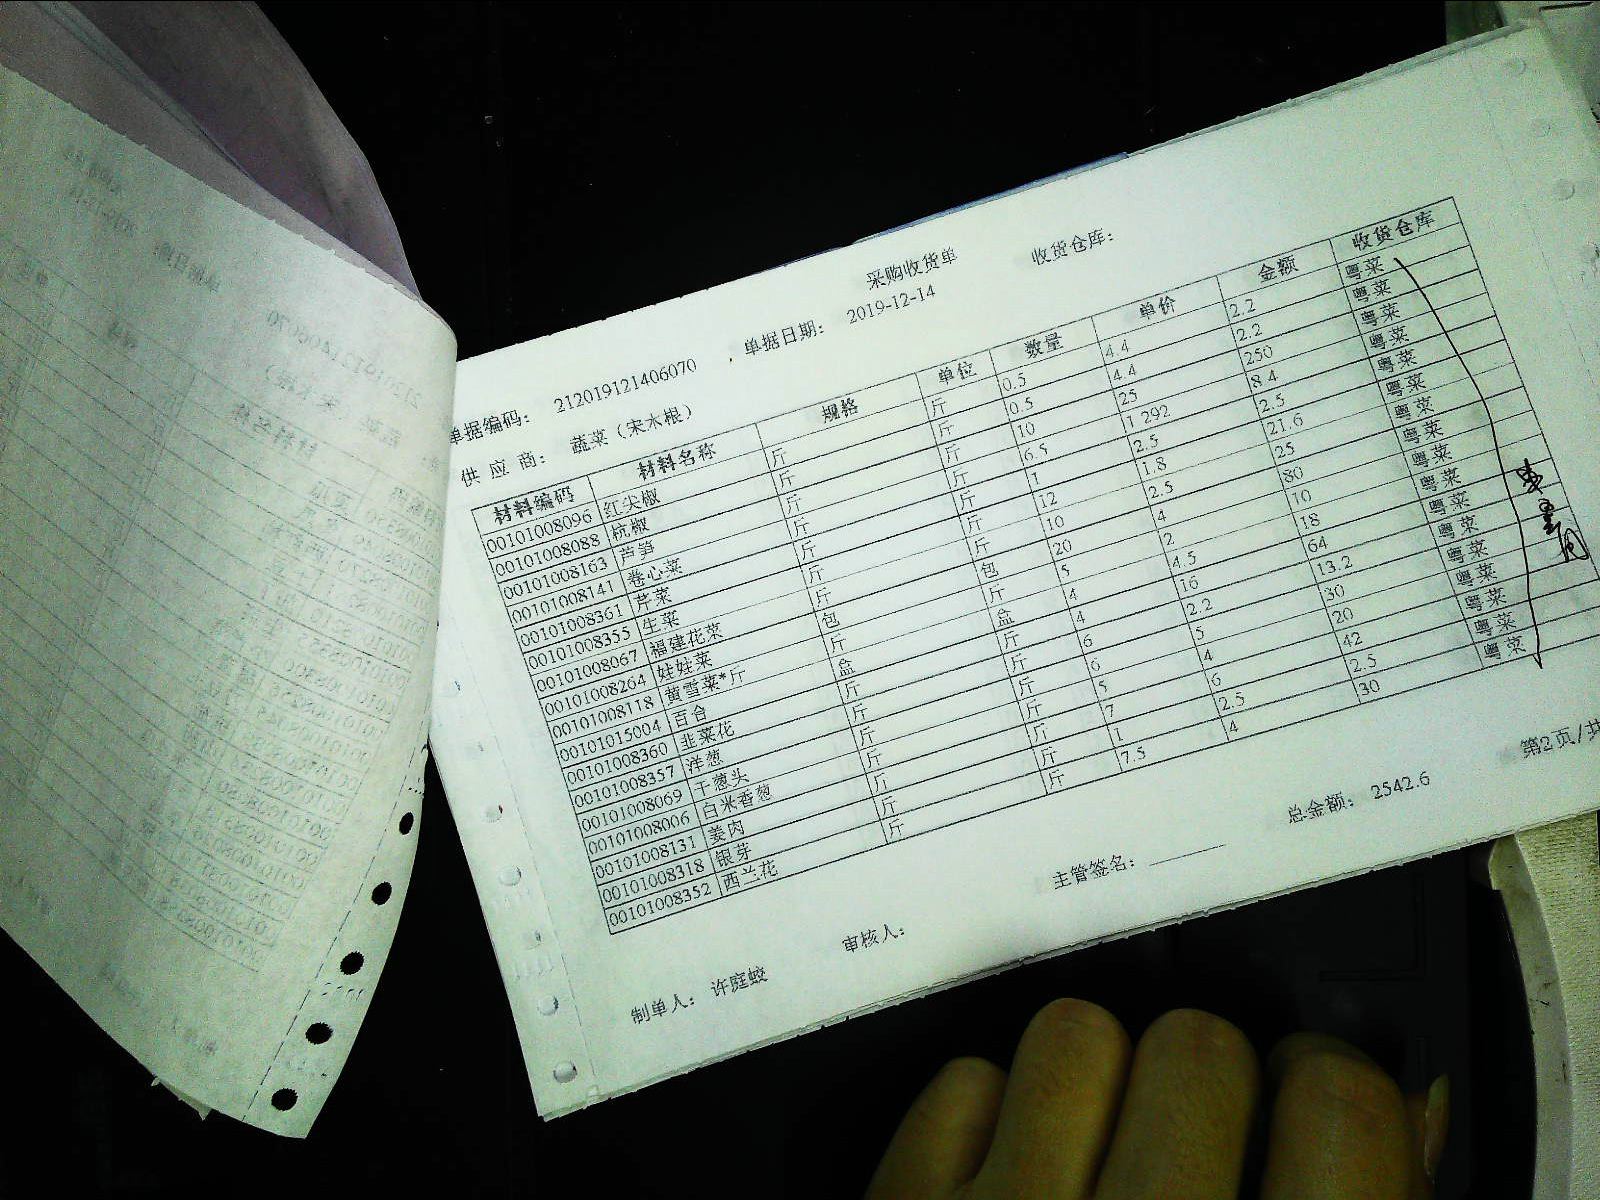 采购收货单
收货仓库:
单据编码: 212019121406070 单据日期: 2019-12-14
供应商: 蔬菜(宋水根)
材料编码 材料名称 规格 单位 数量 单价 金额 收货仓库
00101008096 红尖椒 斤 斤 0.5 4.4 2.2 粤菜
00101008088 杭椒 斤 斤 0.5 4.4 2.2 粤菜
00101008163 芦笋 斤 斤 10 25 250 粤菜
00101008141 卷心菜 斤 斤 6.5 1.292 8.4 粤菜
00101008361 芹菜 斤 斤 1 2.5 2.5 粤菜
00101008355 生菜 斤 斤 12 1.8 21.6 粤菜
00101008067 福建花菜 斤 斤 10 2.5 25 粤菜
00101008264 娃娃菜 包 包 20 4 80 粤菜
00101008118 黄雪菜*斤 斤 斤 5 2 10 粤菜
00101015004 百合 盒 盒 4 4.5 18 粤菜
00101008360 韭菜花 斤 斤 4 16 64 粤菜
00101008357 洋葱 斤 斤 6 2.2 13.2 粤菜
00101008069 干葱头 斤 斤 6 5 30 粤菜
00101008006 白米香葱 斤 斤 5 4 20 粤菜
00101008131 姜肉 斤 斤 7 6 42 粤菜
00101008318 银芽 斤 斤 1 2.5 2.5 粤菜
00101008352 西兰花 斤 斤 7.5 4 30 粤菜
第2页/共
总金额: 2542.6
主管签名:
审核人:
制单人: 许庭蛟